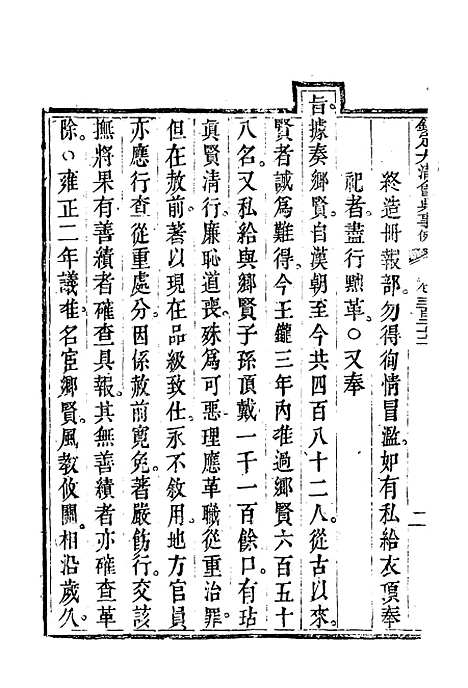 欽定大清會典事例
終造冊報部勿得徇情冒濫如有私給衣頂奉
祀者盡行黜革○又奉
旨據奏鄉賢自漢朝至今共四百八十二人從古以來
賢者誠爲難得今王鑨三年內准過鄉賢六百五十
八名又私給與鄉賢子孫頂戴一千一百餘口有玷
眞賢清行廉恥道喪殊爲可惡理應革職從重治罪
但在赦前著以現在品級致仕永不敘用地方官員
亦應行查從重處分因係赦前寬免著嚴飭行交該
撫將果有善績者確查具報其無善績者亦確查革
除○雍正二年議准名宦鄉賢風教攸關相沿歲久